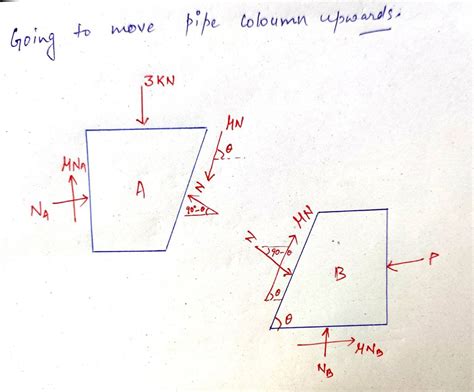 Going to move pipe coloumn upwards.
3KN
μN
θ
μNA
A
N
NA
90°-θ
μN
N
90-θ
θ
B
P
θ
μNB
NB